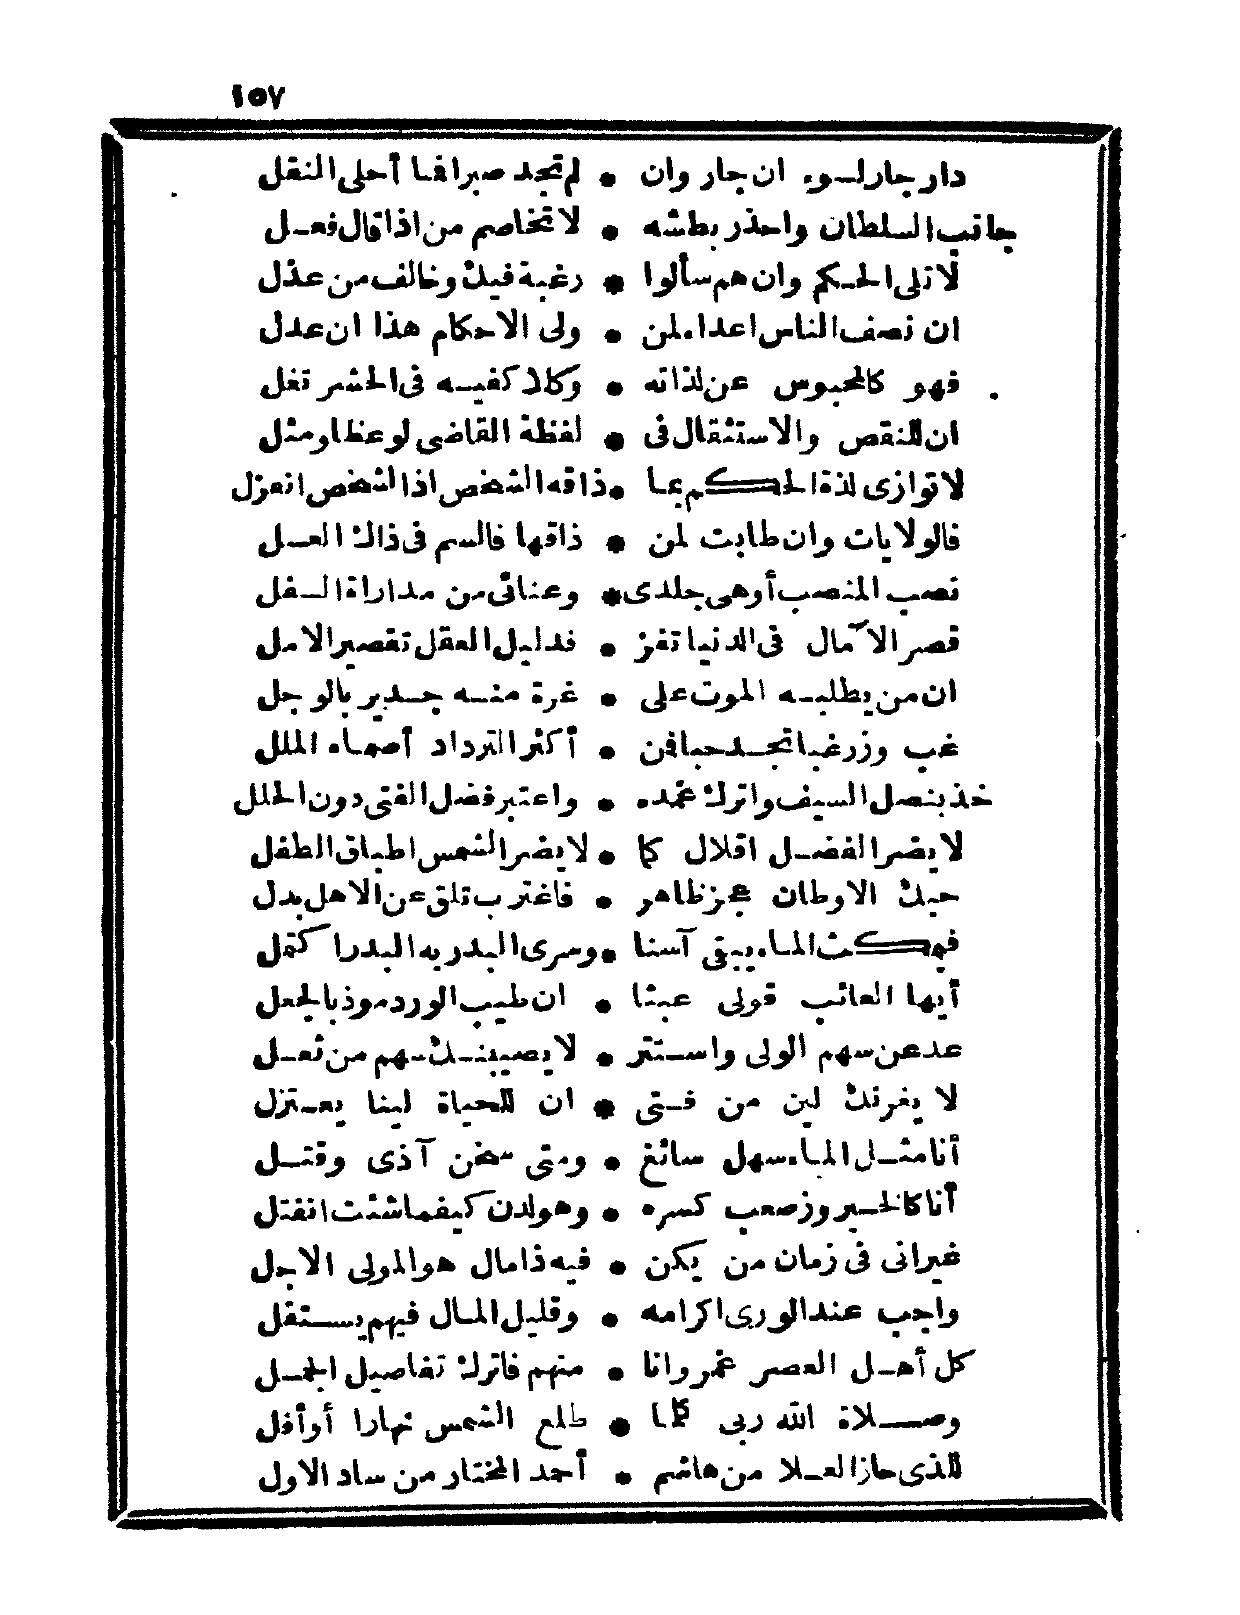 ١٥٧
دار جار السوء ان جار وان * لم تجد صبرا فما أحلى النقل
جانب السلطان واحذر بطشه * لا تخاصم من اذا قال فعل
لا تلى الحكم وان هم سألوا * رغبة فيك وخالف من عذل
ان نصف الناس اعداء لمن * ولى الاحكام هذا ان عدل
فهو كالمحبوس عن لذاته * وكلا كفيه فى الحشر تغل
ان للنقص والاستثقال فى * لفظة القاضى لوعظا ومثل
لا توازى لذة الحكم بما * ذاقه الشخص اذا الشخص انعزل
فالولايات وان طابت لمن * ذاقها فالسم فى ذاك العسل
نصب المنصب أوهى جلدى * وعنائى من مداراة السفل
قصر الآمال فى الدنيا تفز * فدليل العقل تقصير الامل
ان من يطلبه الموت على * غرة منه جدير بالوجل
غب وزرغبا تجد حبا فمن * أكثر الترداد أصماه الملل
خذ بنصل السيف واترك غمده * واعتبر فضل الفتى دون الحلل
لا يضر الفضل اقلال كما * لا يضر الشمس اطباق الطفل
حبك الاوطان عجز ظاهر * فاغترب تلق عن الاهل بدل
فمكث الماء يبقى آسنا * وسرى البدر به البدر اكتمل
أيها العائب قولى عبثا * ان طيب الورد موذ بالجعل
عد عن سهم الولى واستتر * لا يصيبنك سهم من ثعل
لا يغرنك لين من فتى * ان للحياة لينا يعتزل
أنا مثل الماء سهل سائغ * ومتى سخن آذى وقتل
أنا كالخيزور صعب كسره * وهو لدن كيفما شئت انفتل
غيرانى فى زمان من يكن * فيه ذا مال هو المولى الاجل
واجب عند الورى اكرامه * وقليل المال فيهم يستقل
كل أهل العصر غمر وانا * منهم فاترك تفاصيل الجمل
وصلاة الله ربى كلما * طلع الشمس نهارا أو أفل
للذى حاز العلا من هاشم * أحمد المختار من ساد الاول